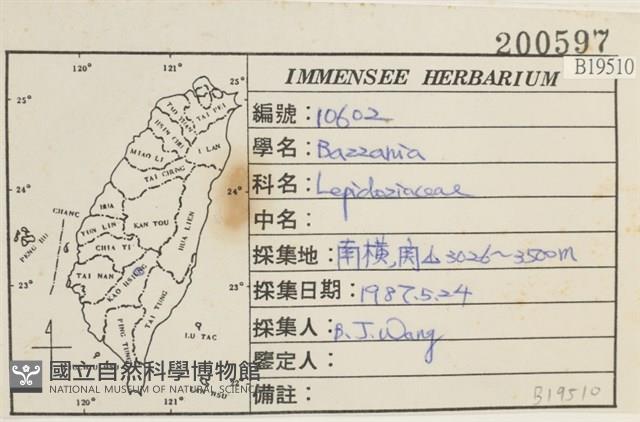 200597
B19510
IMMENSEE HERBARIUM
編號：10602
學名：Bazzania
科名：Lepidoziaceae
中名：
採集地：南橫,関山3026～3500m
採集日期：1987.5.24
採集人：B.J.Wang
鑒定人：
備註：
B19510
120°
121°
25°
25°
TAO YUAN
TAI PEI
HSIN CHU
I LAN
MIAO LI
TAI CHUNG
24°
24°
CHANG
HUA
NAN TOU
HUA LIEN
YUN LIN
PENG HU
CHIA YI
TAI NAN
KAO HSIUNG
23°
23°
TAI TUNG
PING TUNG
LU TAO
國立自然科學博物館
NATIONAL MUSEUM OF NATURAL SCIENCE
22°
120°
121°